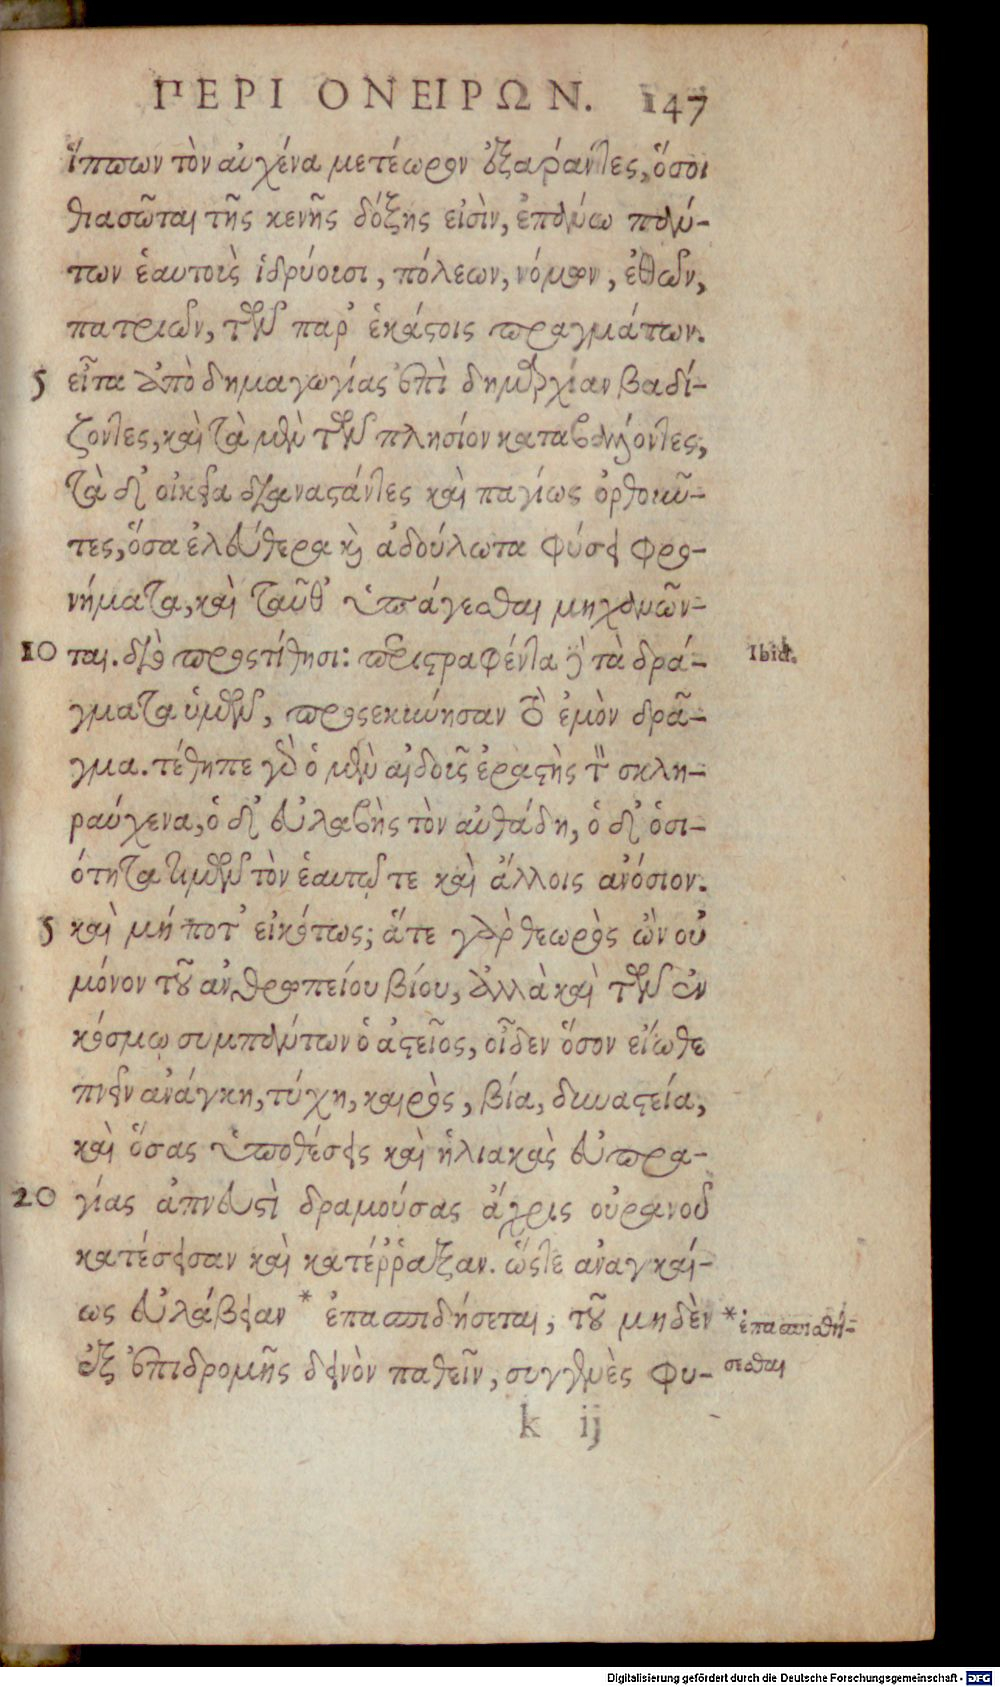 ΠΕΡΙ ΟΝΕΙΡΩΝ. 147
ἵππων τὸν αὐχένα μετέωρον ἐξαράντες, ὅσοι
θιασῶται τῆς κενῆς δόξης εἰσὶν, ἐπάνω πάν-
των ἑαυτοὺς ἱδρύουσι, πόλεων, νόμων, ἐθῶν,
πατρίων, τῶν παρ' ἑκάστοις πραγμάτων.
5 εἶτα ἀπὸ δημαγωγίας ἐπὶ δημαρχίαν βαδί-
ζοντες, καὶ τὰ μὲν τῶν πλησίον καταβάλλοντες,
τὰ δὲ οἰκεῖα διαναστάντες καὶ παγίως ὀρθοιῦ-
τες, ὅσα ἐλεύθερα καὶ ἀδούλωτα φύσει φρο-
νήματα, καὶ ταῦθ' ὑπάγεσθαι μηχανῶν-
10 ται. διὸ προςτίθησι: περιστραφέντα γὰρ τὰ δρά-
Ibid.
γματα ὑμῶν, προςεκύνησαν τὸ ἐμὸν δρᾶ-
γμα. τέθηπε γὰρ ὁ μὲν αἰδοῦς ἐραστὴς τὸν σκλη-
ραύχενα, ὁ δὲ εὐλαβὴς τὸν αὐθάδη, ὁ δὲ ὁσι-
ότητα τιμῶν τὸν ἑαυτῷ τε καὶ ἄλλοις ἀνόσιον.
5 καὶ μή ποτ' εἰκότως; ἅτε γὰρ θεωρὸς ὢν οὐ
μόνον τοῦ ἀνθρωπείου βίου, ἀλλὰ καὶ τῶν ἐν
κόσμῳ συμπάντων ὁ ἀστεῖος, οἶδεν ὅσον εἴωθε
πνεῖν ἀνάγκη, τύχη, καιρὸς, βία, δυναστεία,
καὶ ὅσας ὑποθέσεις καὶ ἡλίκας εὐπρα-
20 γίας ἀπνευστὶ δραμούσας ἄχρις οὐρανοῦ
κατέσεισαν καὶ κατέῤῥαξαν. ὥστε ἀναγκαί-
ως εὐλάβειαν * ἐπασπιδήσεται, τοῦ μηδὲν
* ἐπασπιαθή-
σεσθαι
ἐξ ἐπιδρομῆς δεινὸν παθεῖν, συγγενὲς φυ-
k ij
Digitalisierung gefördert durch die Deutsche Forschungsgemeinschaft - DFG